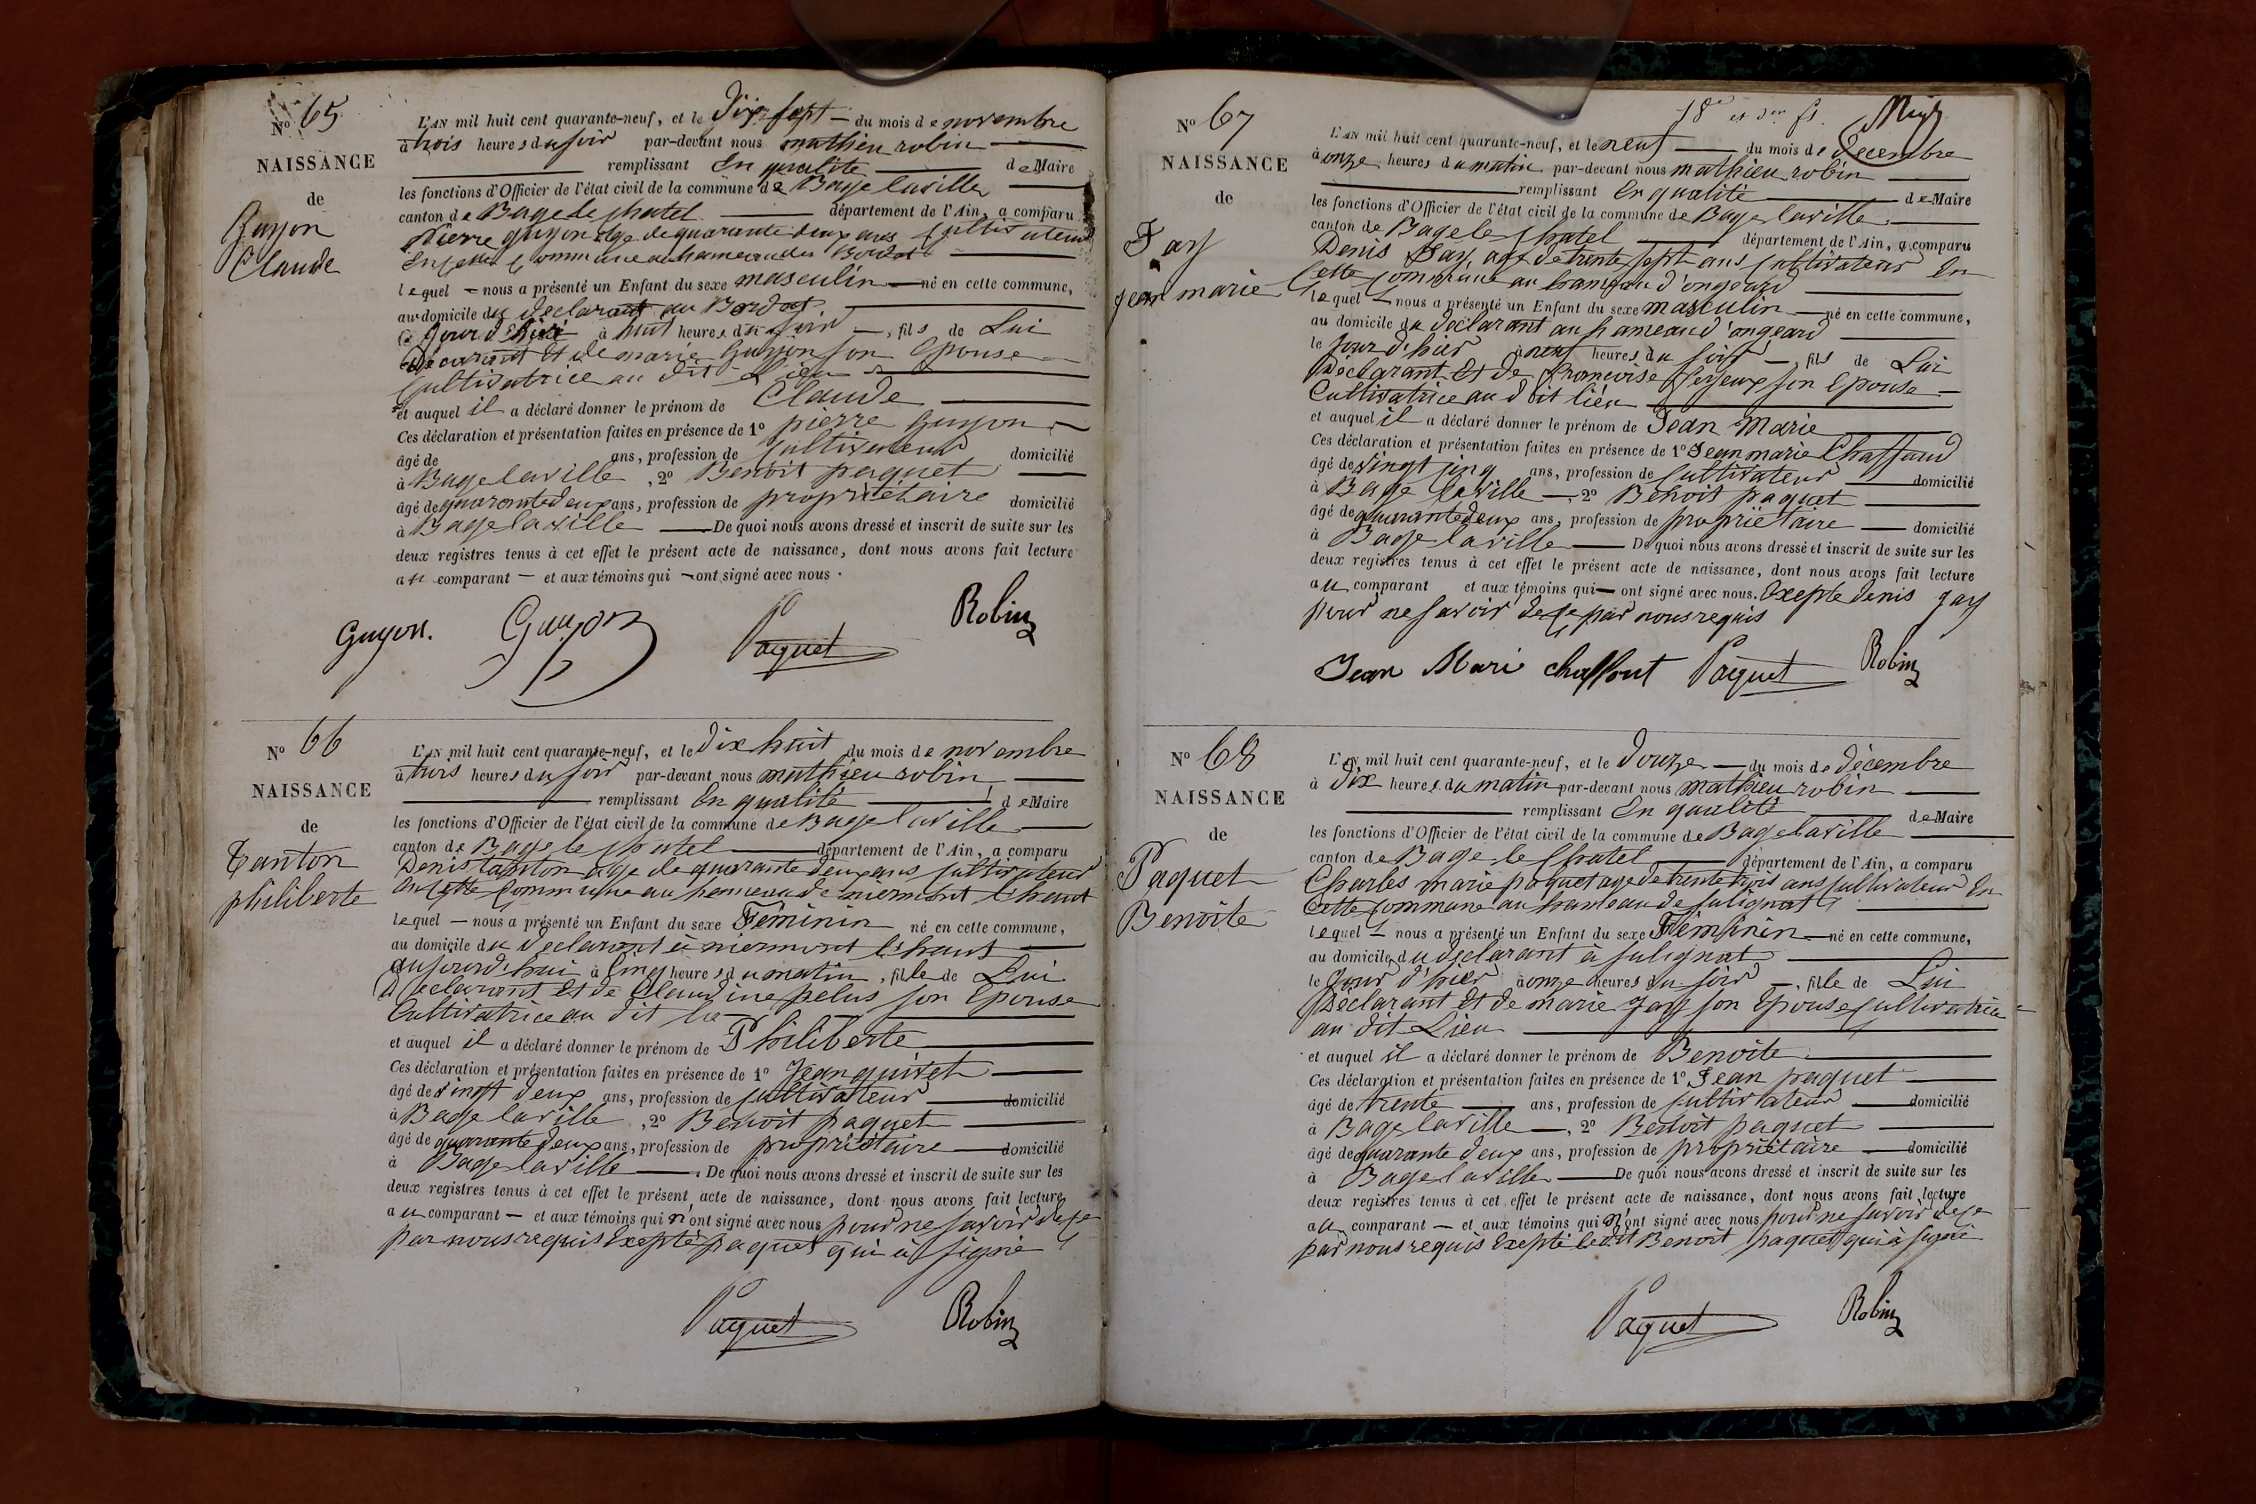 Nº 65
NAISSANCE
de
Guyon
Claude
L'AN mil huit cent quarante-neuf, et le Dix sept du mois de novembre
à trois heures du soir par-devant nous mathieu robin
remplissant En qualité de Maire
les fonctions d'Officier de l'état civil de la commune de Bage laville
canton de Bage le chatel département de l'Ain, a comparu
Pierre guyon age de quarante deux ans Cultivateur
En cette Commune au hameau du Bordat
lequel nous a présenté un Enfant du sexe masculin né en cette commune,
au domicile du declarant au Bordat
le jour d'hier à huit heures du soir, fils de Lui
Déclarant Et de marie Guyon son Epouse
Cultivatrice au dit Lieu
et auquel il a déclaré donner le prénom de Claude
Ces déclaration et présentation faites en présence de 1º pierre Guyon
âgé de ans, profession de Cultivateur domicilié
à Bage laville, 2º Benoit paquet
âgé de quarante deux ans, profession de propriétaire domicilié
à Bage laville De quoi nous avons dressé et inscrit de suite sur les
deux registres tenus à cet effet le présent acte de naissance, dont nous avons fait lecture
au comparant et aux témoins qui ont signé avec nous.
Guyon. Guyon Paquet Robin
Nº 66
NAISSANCE
de
Tanton
philiberte
L'AN mil huit cent quarante-neuf, et le Dix huit du mois de novembre
à trois heures du soir par-devant nous mathieu robin
remplissant En qualité de Maire
les fonctions d'Officier de l'état civil de la commune de Bage laville
canton de Bage le chatel département de l'Ain, a comparu
Denis tanton age de quarante deux ans cultivateur
En cette Commune au hameau de niermont l'haut
lequel nous a présenté un Enfant du sexe Féminin né en cette commune,
au domicile du declarant à niermont l'haut
aujourd'hui à Cinq heures du matin, fille de Lui
Déclarant Et de Claudine pelus son Epouse
Cultivatrice au dit lie
et auquel il a déclaré donner le prénom de Philiberte
Ces déclaration et présentation faites en présence de 1º Jean guivet
âgé de vingt deux ans, profession de cultivateur domicilié
à Bage laville, 2º Benoit paquet
âgé de quarante deux ans, profession de propriétaire domicilié
à Bage laville. De quoi nous avons dressé et inscrit de suite sur les
deux registres tenus à cet effet le présent acte de naissance, dont nous avons fait lecture
au comparant et aux témoins qui n'ont signé avec nous pour ne savoir de ce
par nous requis Excepté paquet qui à signé
Paquet Robin
Nº 67
NAISSANCE
de
Jay
jean marie
18e et der ft.
L'AN mil huit cent quarante-neuf, et le neuf du mois de Decembre
à onze heures du matin par-devant nous mathieu robin
remplissant En qualité de Maire
les fonctions d'Officier de l'état civil de la commune de Bage laville
canton de Bage le chatel département de l'Ain, a comparu
Denis Jay, age de trente sept ans Cultivateur En
Cette Commune au hameau d'ongeard
lequel nous a présenté un Enfant du sexe masculin né en cette commune,
au domicile du declarant au hameau d'ongeard
le jour d'hier à neuf heures du soir, fils de Lui
Déclarant Et de francoise serjeux son Epouse
Cultivatrice au dit liéu
et auquel il a déclaré donner le prénom de Jean Marie
Ces déclaration et présentation faites en présence de 1º Jean marie Chaffaud
âgé de vingt cinq ans, profession de Cultivateur domicilié
à Bage laville, 2º Benoit paquet
âgé de quarante deux ans, profession de propriétaire domicilié
à Bage laville De quoi nous avons dressé et inscrit de suite sur les
deux registres tenus à cet effet le présent acte de naissance, dont nous avons fait lecture
au comparant et aux témoins qui ont signé avec nous. Exepte denis jay
pour ne savoir de ce par nous requis
Jean Mari chaffout Paquet Robin
Nº 68
NAISSANCE
de
Paquet
Benoite
L'AN mil huit cent quarante-neuf, et le Douze du mois de décembre
à Dix heures du matin par-devant nous mathieu robin
remplissant En qualité de Maire
les fonctions d'Officier de l'état civil de la commune de Bage laville
canton de Bage le Chatel département de l'Ain, a comparu
Charles marie paquet age de trente trois ans cultivateur En
Cette Commune au hameau de julignat
lequel nous a présenté un Enfant du sexe Féminin né en cette commune,
au domicile du declarant à julignat
le jour d'hier à onze heures du soir, fille de Lui
Déclarant Et de marie jay son Epouse cultivatrice
au dit Lieu
et auquel il a déclaré donner le prénom de Benoite
Ces déclaration et présentation faites en présence de 1º Jean paquet
âgé de trente ans, profession de Cultivateur domicilié
à Bage laville, 2º Benoit paquet
âgé de quarante deux ans, profession de propriétaire domicilié
à Bage laville De quoi nous avons dressé et inscrit de suite sur les
deux registres tenus à cet effet le présent acte de naissance, dont nous avons fait lecture
au comparant et aux témoins qui n'ont signé avec nous pour ne savoir de ce
par nous requis Exepté ledit Benoit paquet qui à signé
Paquet Robin